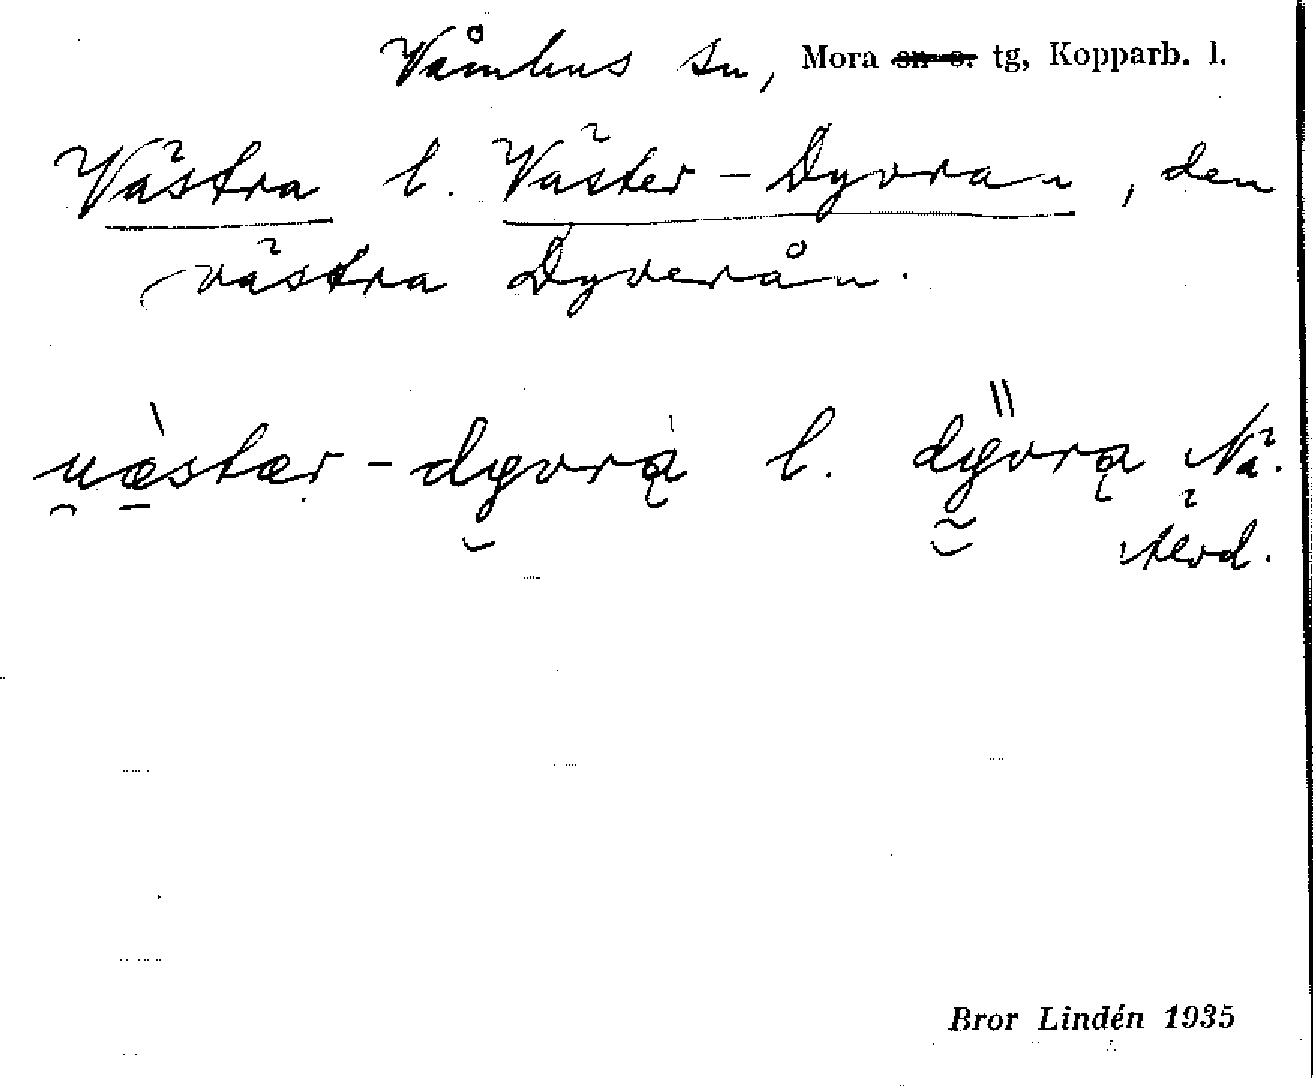 Våmhus sn, Mora sn o. tg, Kopparb. l.
Västra l. Väster-Dyvran, den
västra Dyverån.
u̯æ̀stær-dy̆vrą l. dÿvrą Nä.
Älvd.
Bror Lindén 1935